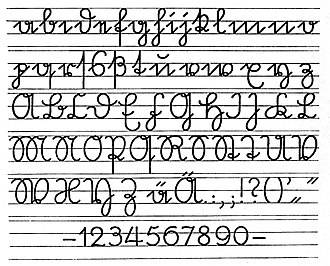 abcdefghijklmno
pqrſsßtŭvwxyz
ABCDEFGHIJKL
MNOPQRSTUV
WXYZüÄ.:,;!?()’„“
-1234567890-